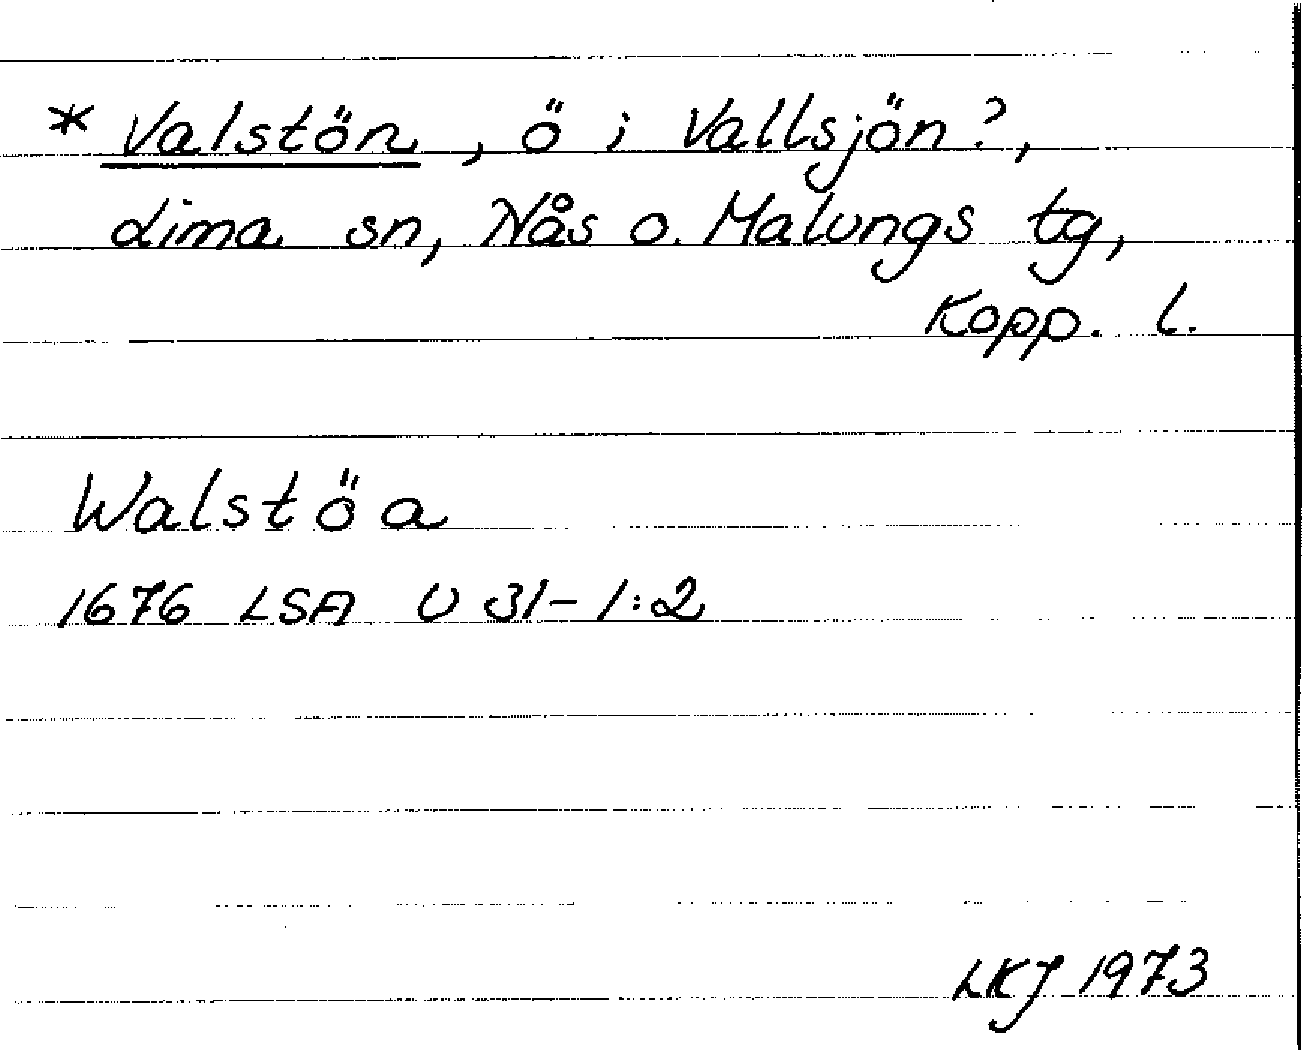 * Valstön, ö i Vallsjön?,
Lima sn, Nås o. Malungs tg,
Kopp. l.
Walstöa
1676 LSA U 31-1:2
LKJ 1973